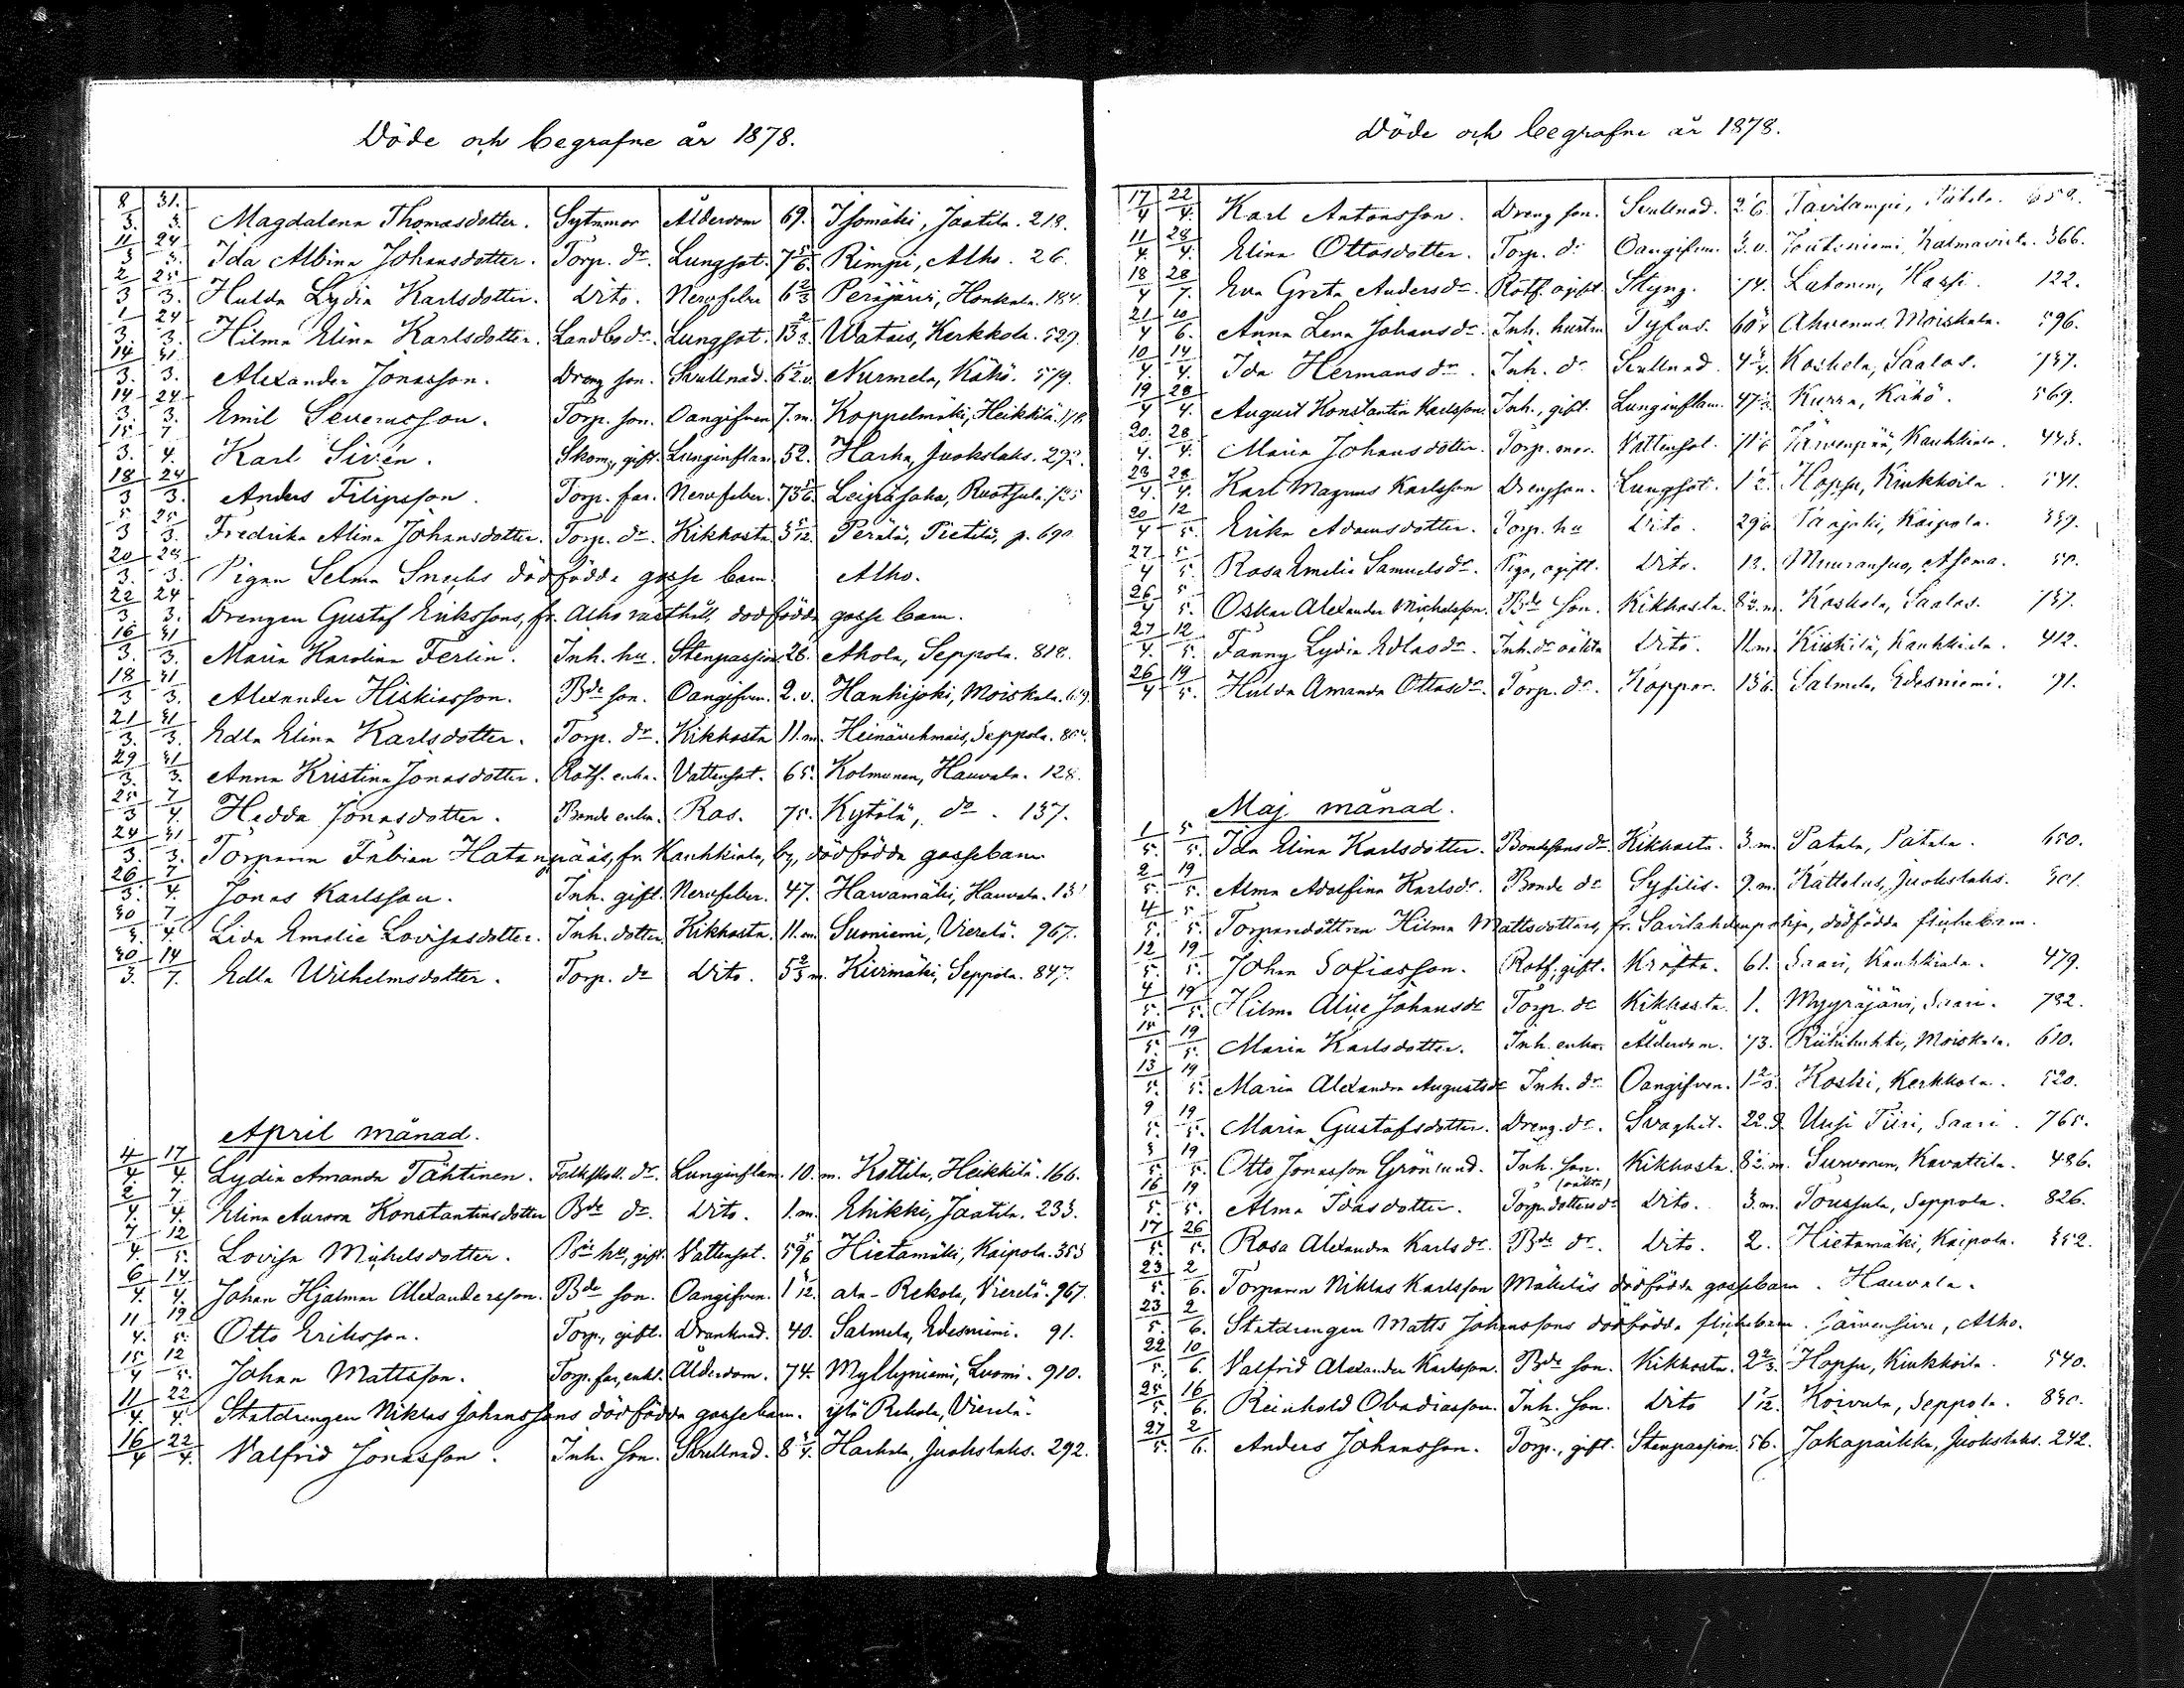 Döde och begrafne år 1878.
8/3. 31./3. Magdalena Thomasdotter. Sytnmor Ålderdom 69. Isomäki, Jaatila. 218.
11/3 24/3. Ida Albina Johansdotter. Torp. dr. Lungsot. 7 5/6. Rimpi, Alho. 26.
2/3 25/3. Hulda Lydia Karlsdotter. Dito. Nervfeber 6 2/3 Peräjärvi, Honkala. 184.
1/3. 24/3. Hilma Elina Karlsdotter. Landbo dr. Lungsot. 13 2/3. Watais, Kerkkola. 529.
14/3. 31/3. Alexander Jonasson. Dreng son. Skullnad. 6 1/2 v. Nurmela, Kähö. 579.
14/3. 24/3. Emil Severusson. Torp. son. Oangifven 7. m. Koppelmäki, Heikkilä.
15/3. 7/4. Karl Sivén. Skom., gift. Lunginflam 52. Harha, Juokslaks. 292.
18/3 24/3. Anders Filipsson. Torp. far. Nervfeber. 73 1/6. Leipäsaha, Ruotsula.
5/3 25/3. Fredrika Alina Johansdotter. Torp. dr. Kikhosta 3 5/12. Perälä, Pietilä, p. 690
20/3. 24/3. Pigan Selma Snecks dödfödda gosse barn. Alho.
22/3 24/3. Drengen Gustaf Erikssons, fr. Alho rusthåll, dödfödda gosse barn.
16/3. 31/3. Maria Karolina Ferlin. Inh. hu. Stenpassion. 26. Ahola, Seppola. 818.
18/3 31/3. Alexander Hiskiasson. Bde son. Oangifven. 2. v. Hankijoki, Moiskala.
21/3. 31/3. Edla Elina Karlsdotter. Torp. dr. Kikhosta 11. m. Heinävehmais, Seppola.
29/3. 31/3. Anna Kristina Jonasdotter. Rotf. enka. Vattensot. 65. Kolmonen, Hauvala. 128.
25/3 7/4. Hedda Jonasdotter. Bonde enka. Ros. 75. Kytölä, do. 137.
24/3. 31/3. Torparen Fabian Hatanpääs, fr. Kauhkiala, by, dödfödda gossebarn
26/3. 7/4. Jonas Karlsson. Inh. gift. Nervfeber. 47. Harvamäki, Hauvala.
30/3. 7/4. Lida Emelie Lovisasdotter. Inh. dotter Kikhosta. 11. m. Suoniemi, Vierelä. 967.
30/3. 14/7. Edla Wilhelmsdotter. Torp. dr Dito. 5 2/3 m. Kivimäki, Seppola. 847.
April månad.
4/4. 17/4. Lydia Amanda Tähtinen. Folkskoll. dr. Lunginflam. 10. m. Kottila, Heikkilä. 166.
2/4. 7/4. Elina Aurora Konstantinsdotter Bde dr. Dito. 1. m. Uhikki, Jaatila. 233.
7/4. 12/5. Lovisa Mickelsdotter. Bde hu, gift. Vattensot. 59 5/6 Hietamäki, Kaipola. 353
6/4. 14/4. Johan Hjalmar Alexandersson. Bde son. Oangifven. 1 1/12. ala-Rekola, Vierelä. 967.
11/4. 19/5. Otto Eriksson. Torp., gift. Drunknad. 40. Salmela, Edesniemi. 91.
15/4 12/5. Johan Mattsson. Torp. far, enkl. Ålderdom. 74. Myllyniemi, Luomi. 910.
11/4. 22/4. Statdrengen Niklas Johanssons dödfödda gossebarn. ylö Rekola, Vierelä.
16/4 22/4. Valfrid Jonasson. Inh. son. Skullnad. 8 3/4. Harhala, Juokslaks. 292.
Döde och begrafne år 1878.
17/4 22/4. Karl Antonsson. Dreng son. Skullnad. Tavilampi, Pätala. 659.
11/4. 28/4. Elina Ottosdotter. Torp. dr Oangifven. 3. v. Joutsniemi, Kalmavirta. 366.
18/4 28/7. Eva Greta Andersdr. Rotf. ogift. Styng. 74. Lahonen, Hassi. 122.
21/4 10/6. Anna Lena Johansdr. Inh. hustru Tyfus. Ahvenus, Moiskala. 596.
10/4. 14/4. Ida Hermansdr. Inh. dr Skullnad. 4 3/4. Koskela, Saalos. 737.
19/4 28/4. August Konstantin Karlsson. Inh., gift. Lunginflam. Kurra, Kähö. 569.
20./4. 28/4. Maria Johansdotter. Torp. mor. Vattensot. Järvenpää, Kauhkiala. 443.
23/4. 28/4. Karl Magnus Karlsson Drengson. Lungsot. 1 1/2. Hopsu, Kiukkoila. 541.
20/4 12/5. Erika Adamsdotter. Torp. hu Dito. Kaipola. 339.
27/4 5/5. Rosa Emelia Samuelsdr. Piga, ogift. Dito. 12. Muuransuo, Asoma. 50.
26/4 5/5. Oskar Alexander Michelsson. Bde son. Kikhosta. 8 1/2. m. Koskola, Saalos. 737.
27/4. 12/5. Fanny Lydia Edlasdr. Inh. dr oäkta Dito. 11. m. Kiiskilä, Kauhkiala. 412.
26/4 19/5. Hulda Amanda Ottosdr. Torp. dr. Koppor. Salmela, Edesniemi. 91.
Maj månad.
1/5. 5/5. Ida Elina Karlsdotter. Bondesons dr Kikhosta. 3. m. Patala, Patala. 650.
2/5. 19/5. Alma Adolfina Karlsdr. Bonde dr Syfilis. 9. m. Kattelus, Juokslaks. 301.
4/5. 5/5. Torparedottren Hilma Mattsdotters, fr. Savilahdenpohja, dödfödda flickebarn.
12/5. 19/5. Johan Sofiasson. Rotf., gift. Kräfta. 61. Saari, Kauhkiala. 479.
4/5. 19/5. Hilma Alice Johansdr Torp. dr Kikhosta. 1. Myyräjärvi, Saari. 782.
15/5. 19/5. Maria Karlsdotter. Inh. enka. Ålderdom. 73. Riihihuhta, Moiskala. 610.
13/5. 19/5. Maria Alexandra Augustsdr Inh. dr Oangifven. 1 2/3. Koski, Kerkkola. 520.
9/5. 19/5. Maria Gustafsdotter. Dreng. dr. Svaghet. 22. d. Uusi Tiiri, Saari. 765.
3/5. 19/5. Otto Jonasson Grönlund. Inh. son. Kikhosta. 8 1/2. m. Survonen, Kavattila. 486.
16/5. 19/5. Alma Idasdotter. Torp. dotters dr (oäkta) Dito. 3. m. Toussula, Seppola. 826.
17/5. 26/5. Rosa Alexandra Karlsdr. Bde dr. Dito. 2. Hietamäki, Kaipola. 352.
23/5. 2/6. Torparen Niklas Karlsson Mäkeläs dödfödda gossebarn. Hauvala.
23/5. 2/6. Statdrengen Matts Johanssons dödfödda flickebarn. Alho.
22/5. 10/6. Valfrid Alexander Karlsson. Bde son. Kikhosta. 2 2/3. Hopsu, Kiukkoila. 540.
25/5. 16/6. Reinhold Obadiasson. Inh. son. Dito 1 1/12. Koivula, Seppola. 830.
27/5. 2/6. Anders Johansson. Torp., gift. Stenpassion. 56. Jokapaikka, Juokslaks. 242.